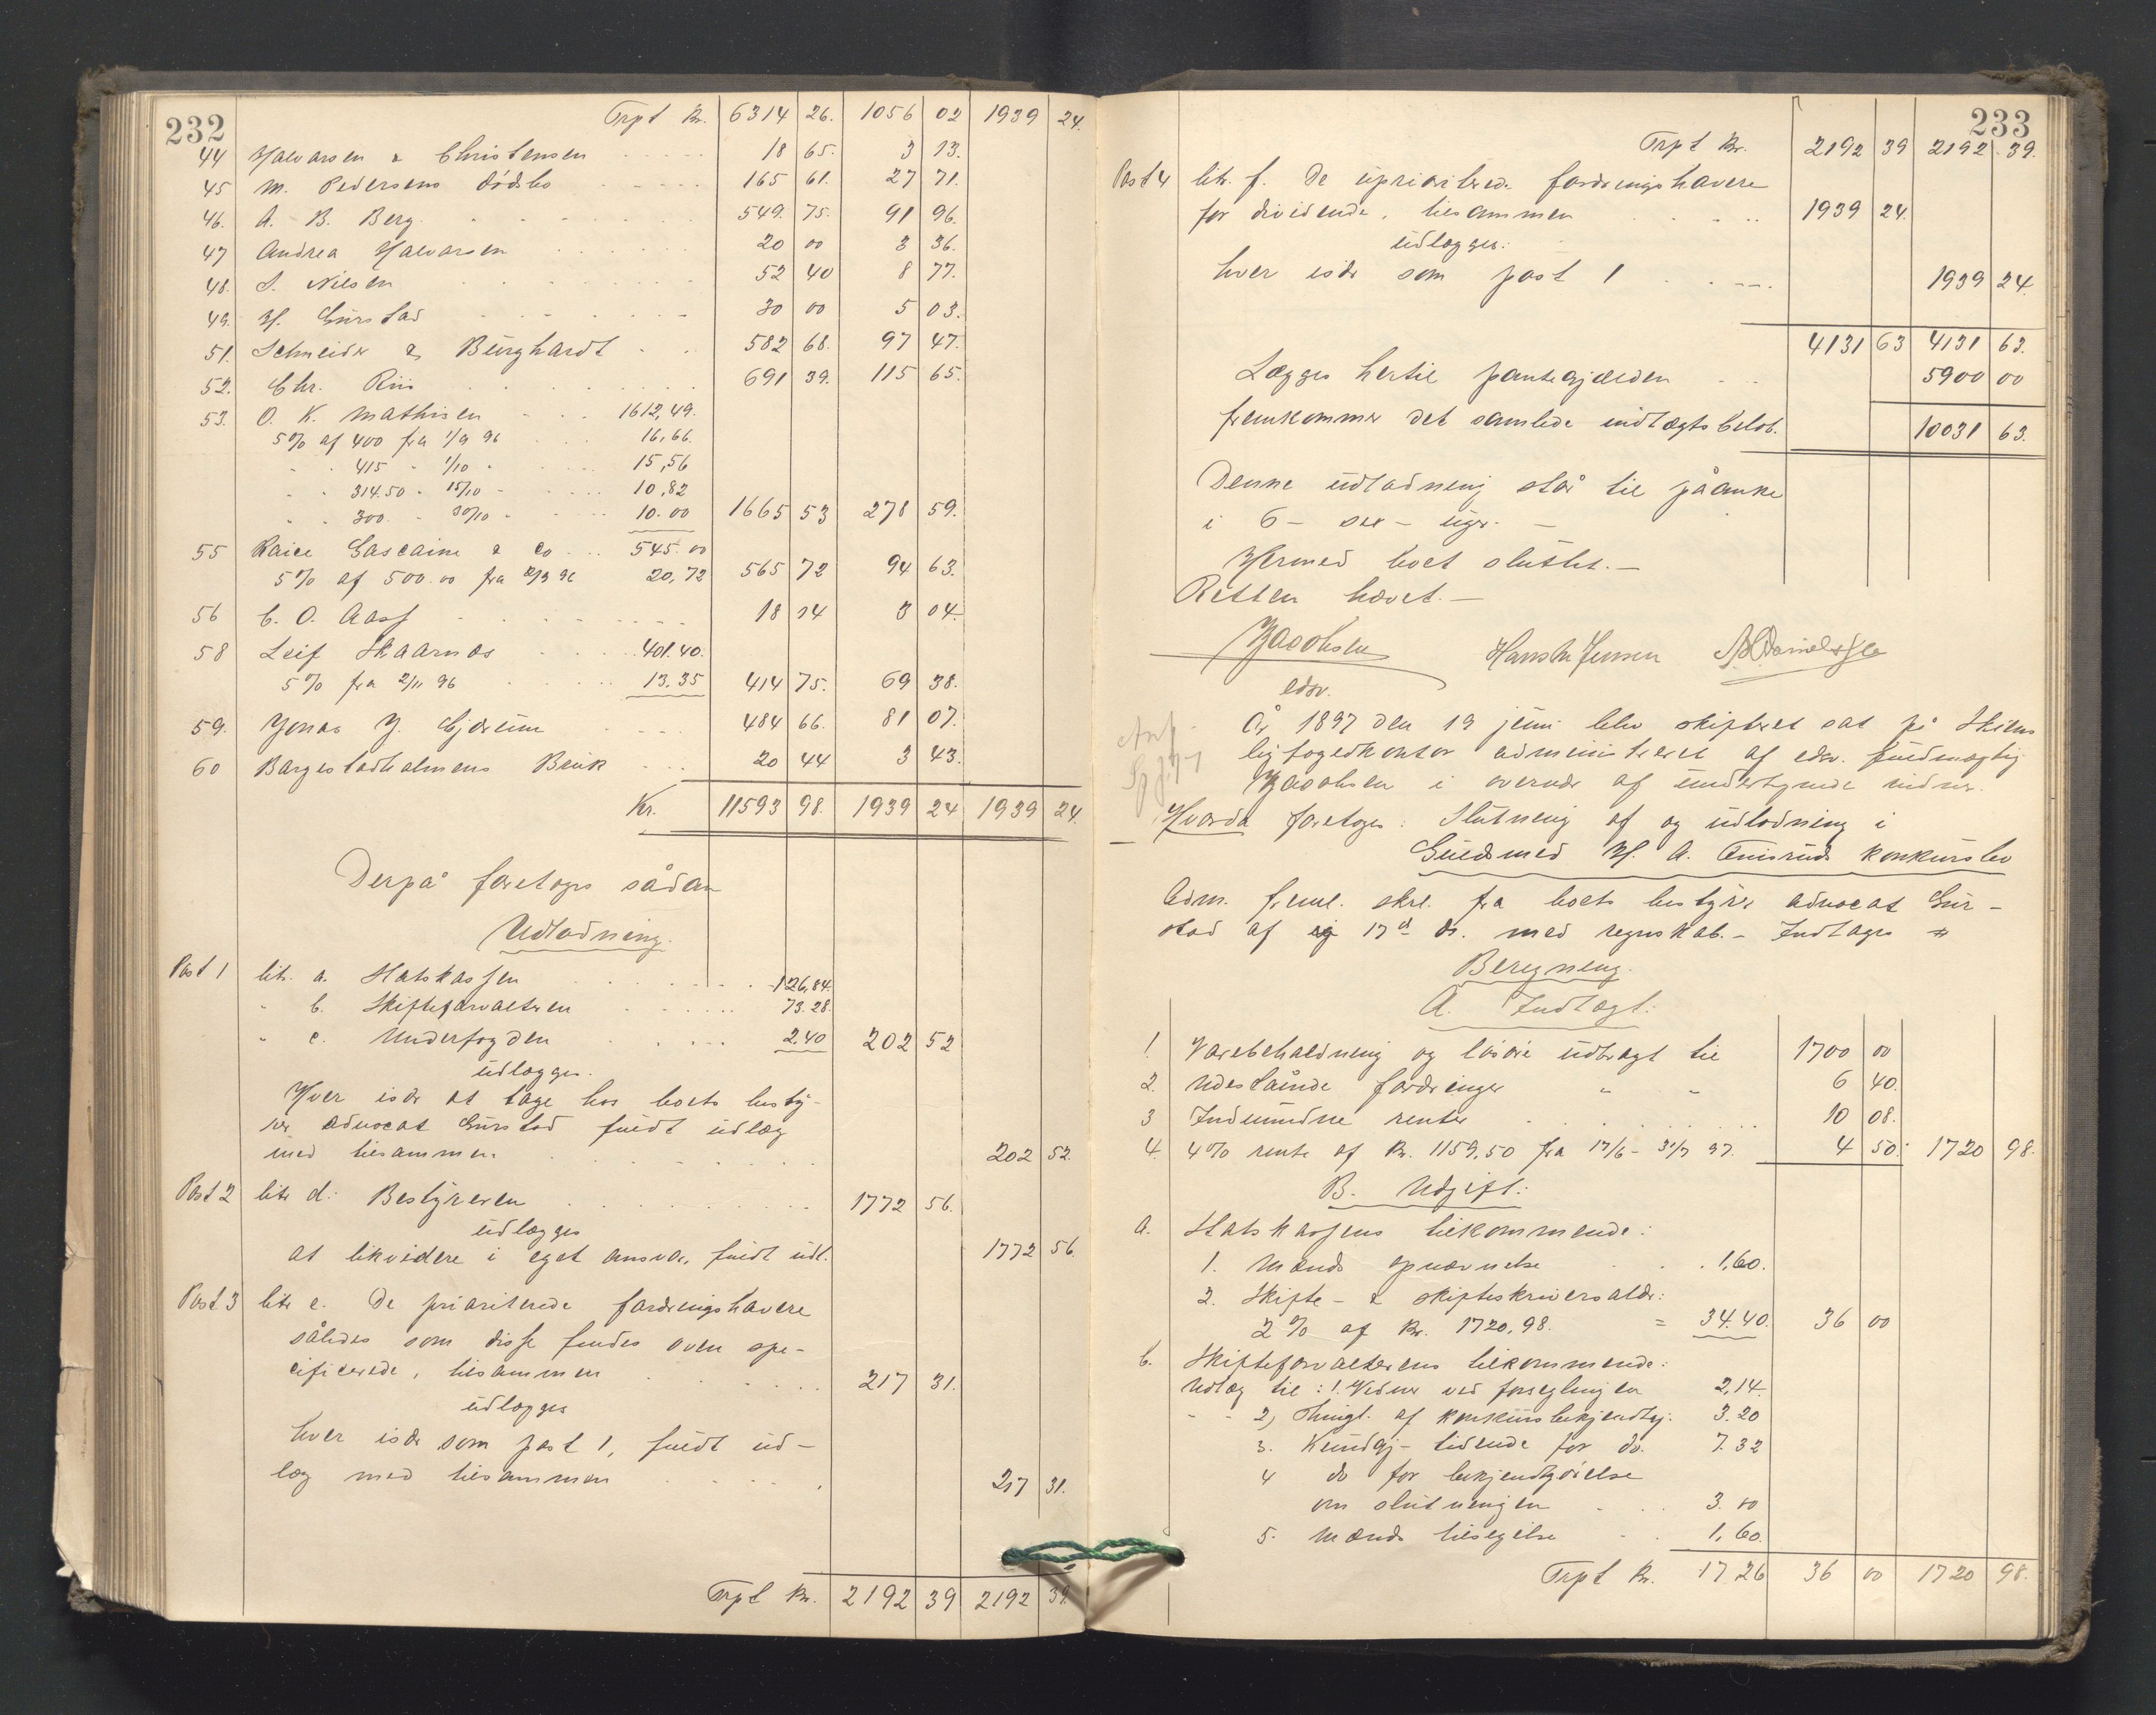 232
Trpt Kr. 6314 26. 1056 02 1939 24.
44 Halvorsen & Christensen 18 65. 3 13.
45 M. Pedersens dødsbo 165 61. 27 71.
46. A. B. Berg 549. 75. 91 96.
47 Andrea Halvorsen 20 00 3 36.
48. S. Nilsen 52 40 8 77.
49. H. Gurstad 30 00 5 03.
51. Schneider & Burghardt 582 68. 97 47.
52. Chr. Riis 691 39. 115 65.
53. O. K. Mathisen 1612,49.
5% af 400 fra 1/9 96 16,66.
" " 415 " 1/10 " 15,56
" " 314.50 " 15/10 " 10,82
" " 300 " 30/10 " 10.00 1665 53 278 59.
55 Gascaine & Co 545.00
5% af 500.00 fra 96 20,72 565 72 94 63.
56 C. O. Aass 18 14 3 04.
58 Leif Skaarnæs 401.40.
5% fra 2/11 96 13.35 414 75. 69 38.
59. Jonas J. Gjærum 484 66. 81 07.
60 Borgestadholmens Brug 20 44 3 43.
Kr. 11593 98. 1939 24 1939 24.
Derpå foretoges sådan
Udlodning.
Post 1 litr. a. Statskassen 126,84.
" b. Skifteforvalteren 73.28.
" c. Underfogden 2.40 202 52
udlægges.
Hver især at tage hos boets besty-
rer advocat Gurstad fuldt udlæg
med tilsammen 202 52
Post 2 litr d: Bestyreren 1772 56.
udlægges
at likvidere i eget ansvar, fuldt udl. 1772 56.
Post 3 litr e. De prioriterede fordringshavere
således som disse findes oven spe-
cificerede, tilsammen 217 31.
udlægges
hver især som post 1, fuldt ud-
læg med tilsammen 217 31.
Trpt Kr. 2192 39 2192 39.
233
Trpt Kr. 2192 39 2192. 39.
Post 4 litr. f. De upriorterede fordringshavere
for dividende, tilsammen 1939 24.
udlægges:
hver især som post 1 1939 24.
4131 63 4131 63.
Lægges hertil pantegjælden 5900 00
fremkommer det samlede indtægtsbeløb. 10031 63.
Denne udlodning står til påanke
i 6 - sex - uger. -
Hermed boet sluttet. -
Retten hævet. -
Jacobsen Hans M Jensen
edsv.
År 1897 den 19 juni blev skifteret sat på Skiens
byfogedkontor administreret af edsv. fuldmægtig
Jacobsen i overvær af undertegnede vidner.
Hvorda foretoges: Slutning af og udlodning i
Guldsmed H. A. konkursbo
Adm. freml. skr. fra boets bestyrer advocat Gur-
stad af 17d ds. med regnskab. - Indtages
Beregning.
A. Indtægt:
1. Varebeholdning og løsøre udbragt til 1700 00
2. Udestående fordringer " " 6 40.
3 Indvundne renter 10 08.
4. 4% rente af Kr. 1159,50 fra 17/6 - 31/7 97. 4 50. 1720 98.
B. Udgift:
a. Statskassens tilkommende:
1. Mænds opnævnelse 1,60.
2. Skifte- & skifteskriversalær:
2% af Kr. 1720,98. = 34.40. 36 00
b. Skifteforvalterens tilkommende:
Udlæg til: 1. Vidner ved forseglingen 2,14.
" " 2) Thingl. af konkursbekjendtgj. 3.20
3. Kundgj-tidende for do. 7.32
4 do for bekjendtgørelse
om slutningen 3.00
5. Mænds tilsigelse 1,60.
Trpt Kr. 17.26 36 00 1720 98.